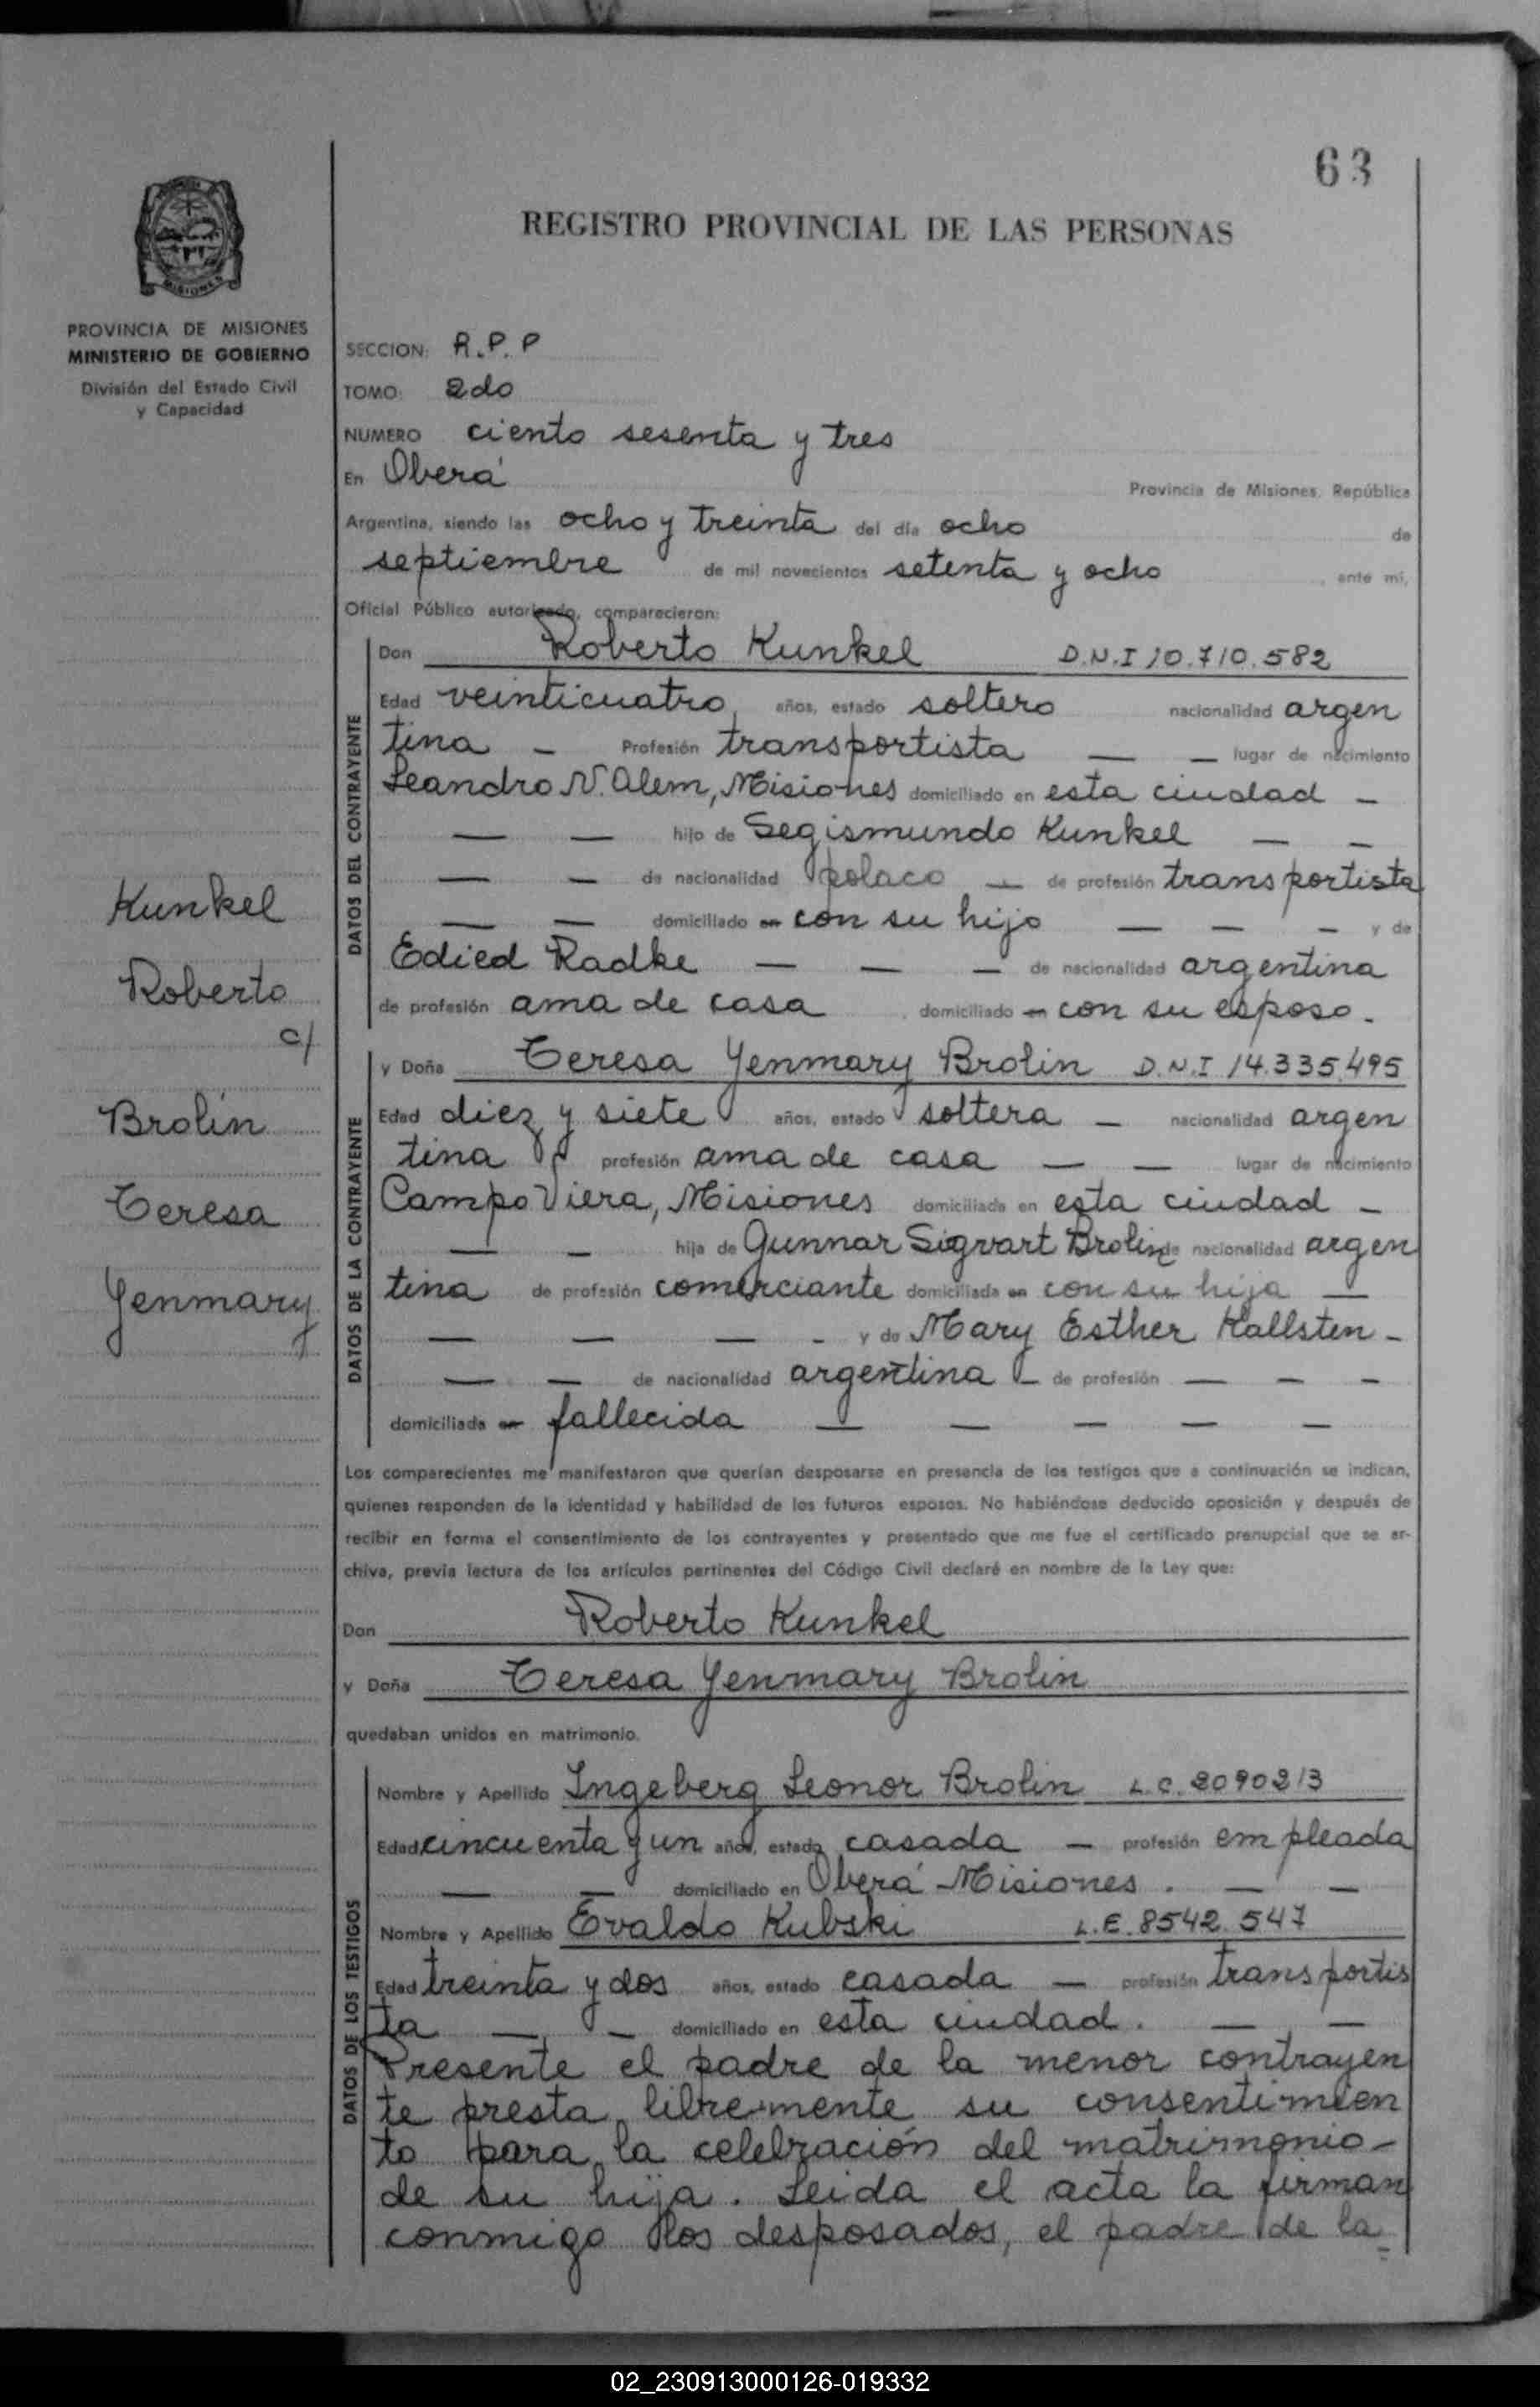 63
REGISTRO PROVINCIAL DE LAS PERSONAS
MISIONES
PROVINCIA DE MISIONES
MINISTERIO DE GOBIERNO
División del Estado Civil
y Capacidad
SECCION: R.P.P
TOMO: 2do
NUMERO ciento sesenta y tres
En Oberá Provincia de Misiones, República
Argentina, siendo las ocho y treinta del día ocho de
septiembre de mil novecientos setenta y ocho, ante mí,
Oficial Público autorizado, comparecieron:
Kunkel
Roberto
c/
Brolin
Teresa
Yenmary
DATOS DEL CONTRAYENTE
Don Roberto Kunkel D.N.I 10.710.582
Edad veinticuatro años, estado soltero nacionalidad argen
tina — Profesión transportista — — lugar de nacimiento
Leandro N. Alem, Misiones domiciliado en esta ciudad —
— — hijo de Segismundo Kunkel — —
— — de nacionalidad polaco — de profesión transportista
— — domiciliado en con su hijo — — — y de
Edied Radke — — — de nacionalidad argentina
de profesión ama de casa, domiciliado en con su esposo.
DATOS DE LA CONTRAYENTE
y Doña Teresa Yenmary Brolin D.N.I 14.335.495
Edad diez y siete años, estado soltera — nacionalidad argen
tina profesión ama de casa — — lugar de nacimiento
Campo Viera, Misiones domiciliada en esta ciudad —
— — hija de Gunnar Sigvart Brolin de nacionalidad argen
tina de profesión comerciante domiciliada en con su hija —
— — — - y de Mary Esther Kallsten -
— — de nacionalidad argentina — de profesión — — —
domiciliada en fallecida — — — — —
Los comparecientes me manifestaron que querían desposarse en presencia de los testigos que a continuación se indican,
quienes responden de la identidad y habilidad de los futuros esposos. No habiéndose deducido oposición y después de
recibir en forma el consentimiento de los contrayentes y presentado que me fue el certificado prenupcial que se ar-
chiva, previa lectura de los artículos pertinentes del Código Civil declaré en nombre de la Ley que:
Don Roberto Kunkel
y Doña Teresa Yenmary Brolin
quedaban unidos en matrimonio.
DATOS DE LOS TESTIGOS
Nombre y Apellido Ingeberg Leonor Brolin L.C. 2090213
Edad cincuenta y un años, estado casada — profesión empleada
— — domiciliado en Oberá Misiones. — —
Nombre y Apellido Evaldo Kubski L.E. 8542.547
Edad treinta y dos años, estado casada — profesión transportis
ta — — domiciliado en esta ciudad. — —
Presente el padre de la menor contrayen
te presta libremente su consentimien
to para la celebración del matrimonio-
de su hija. Leida el acta la firman
conmigo los desposados, el padre de la
02_230913000126-019332